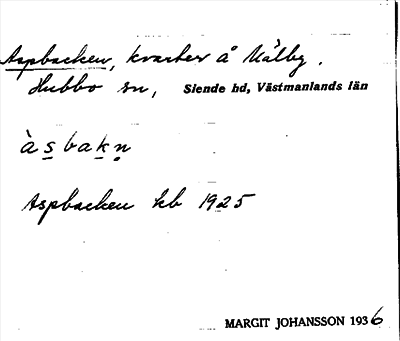 Aspbacken, kvarter å Kälby.
Hubbo sn, Siende hd, Västmanlands län
àsbakn̥
Aspbacken kb 1925
MARGIT JOHANSSON 1936